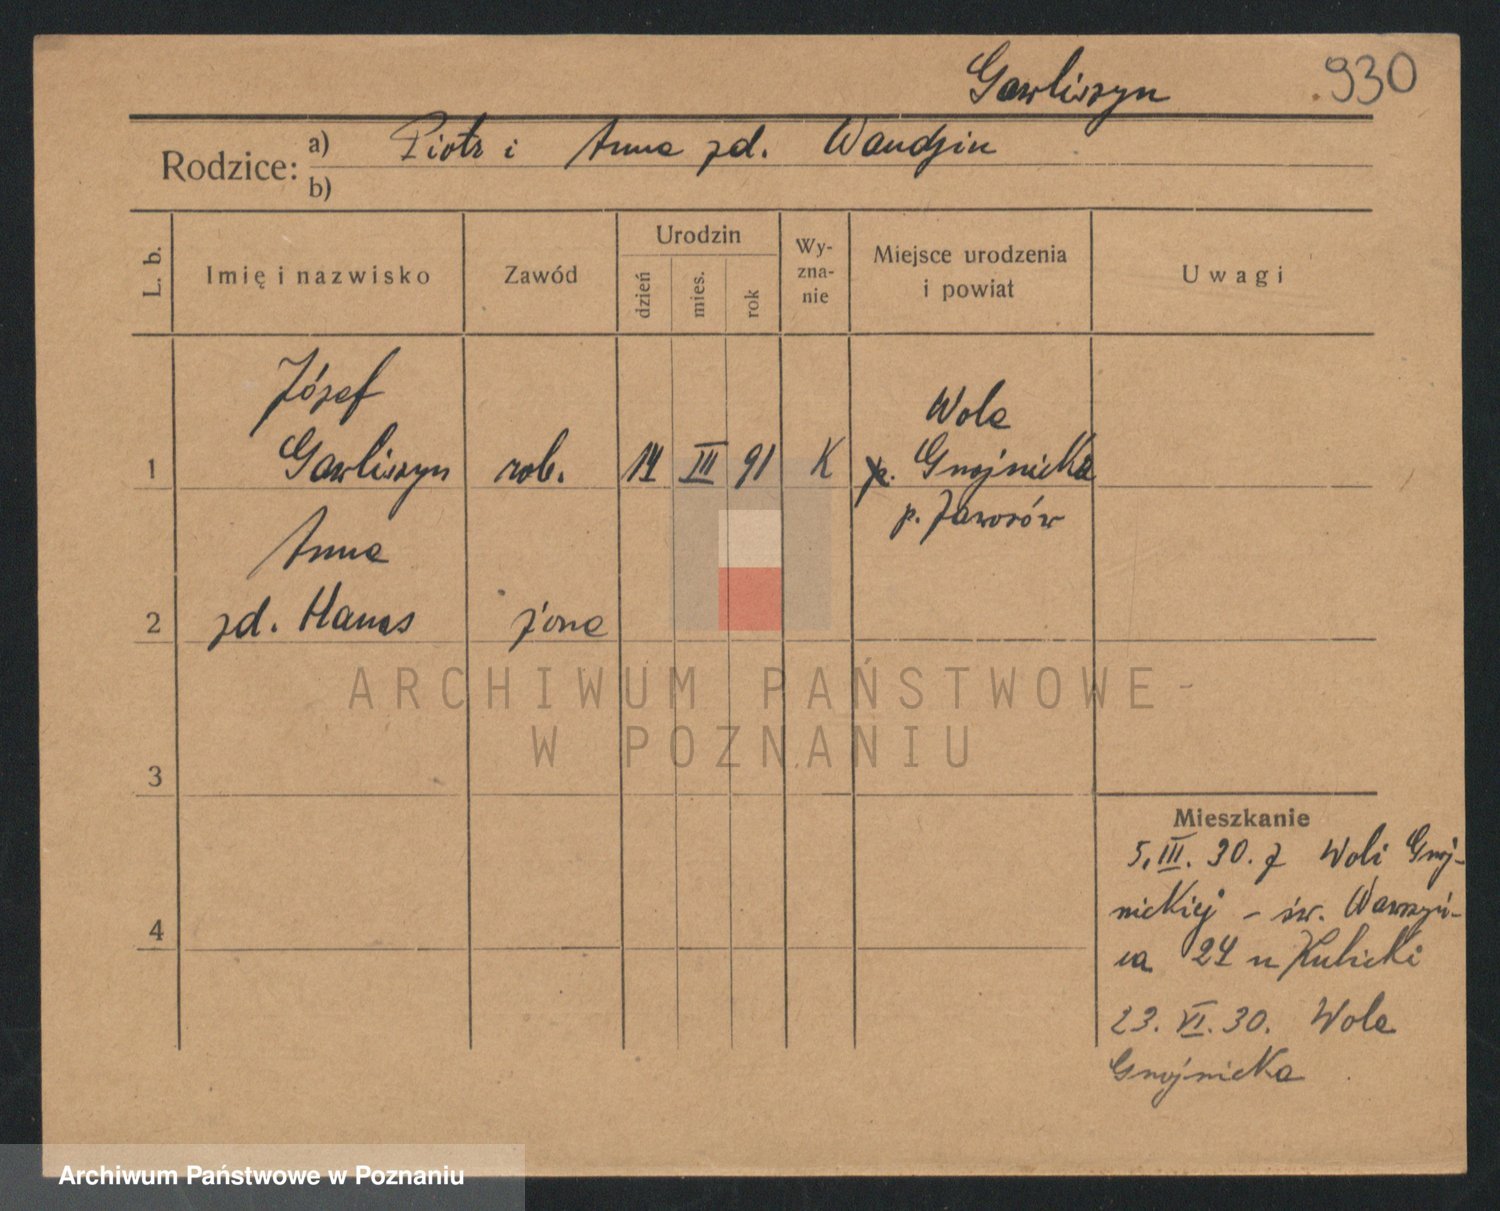 Gawliszyn 930
Rodzice: a) Piotr i Anna zd. Wandzin
b)
L. b.
Imię i nazwisko
Zawód
Urodzin
dzień
mies.
rok
Wy-
zna-
nie
Miejsce urodzenia
i powiat
Uwagi
Józef
Wola
1 Gawliszyn rob. 14 III 91 K p. Gnojnicka
p. Jaworów
Anna
2 zd. Hanas żona
ARCHIWUM PAŃSTWOWE
W POZNANIU
3
Mieszkanie
5.III.30. z Woli Gnoj-
nickiej - św. Wawrzyń-
4
ca 24 u Kubicki
23. VI. 30. Wola
Gnojnicka
Archiwum Państwowe w Poznaniu